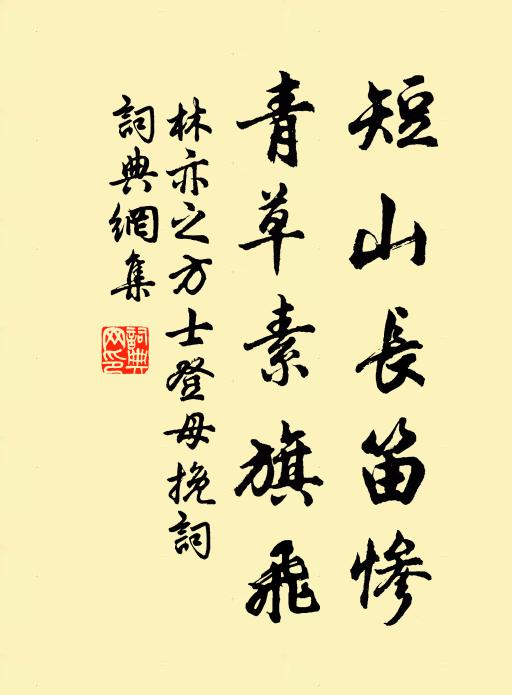 短山長笛慘
青草素旗飛
林亦之方士登母挽詞
詞典網集
詞典网印